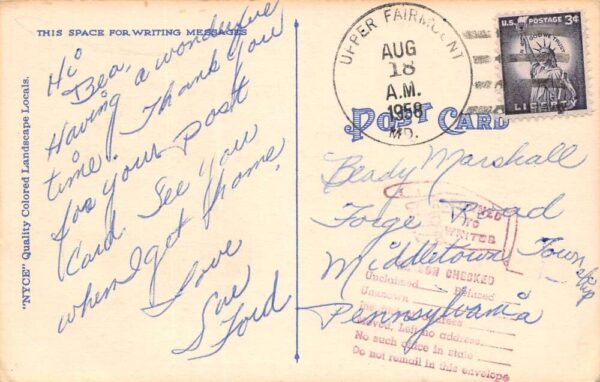 THIS SPACE FOR WRITING MESSAGES
"NYCE" Quality Colored Landscape Locals.
Hi
Bea,
Having a wonderful
time. Thank you
for your post
Card. See you
when I get home.
Love
Sue
Ford
UPPER FAIRMOUNT
AUG
18
A.M.
1958
MD.
U.S. POSTAGE 3¢
IN GOD WE TRUST
LIBERTY
POST CARD
Beady Marshall
Forge Road
Middletown Township
Pennsylvania
TO
WRITER
CHECKED
Unclaimed Refused
Unknown
address
Moved, Left no address
No such office in state
Do not remail in this envelope